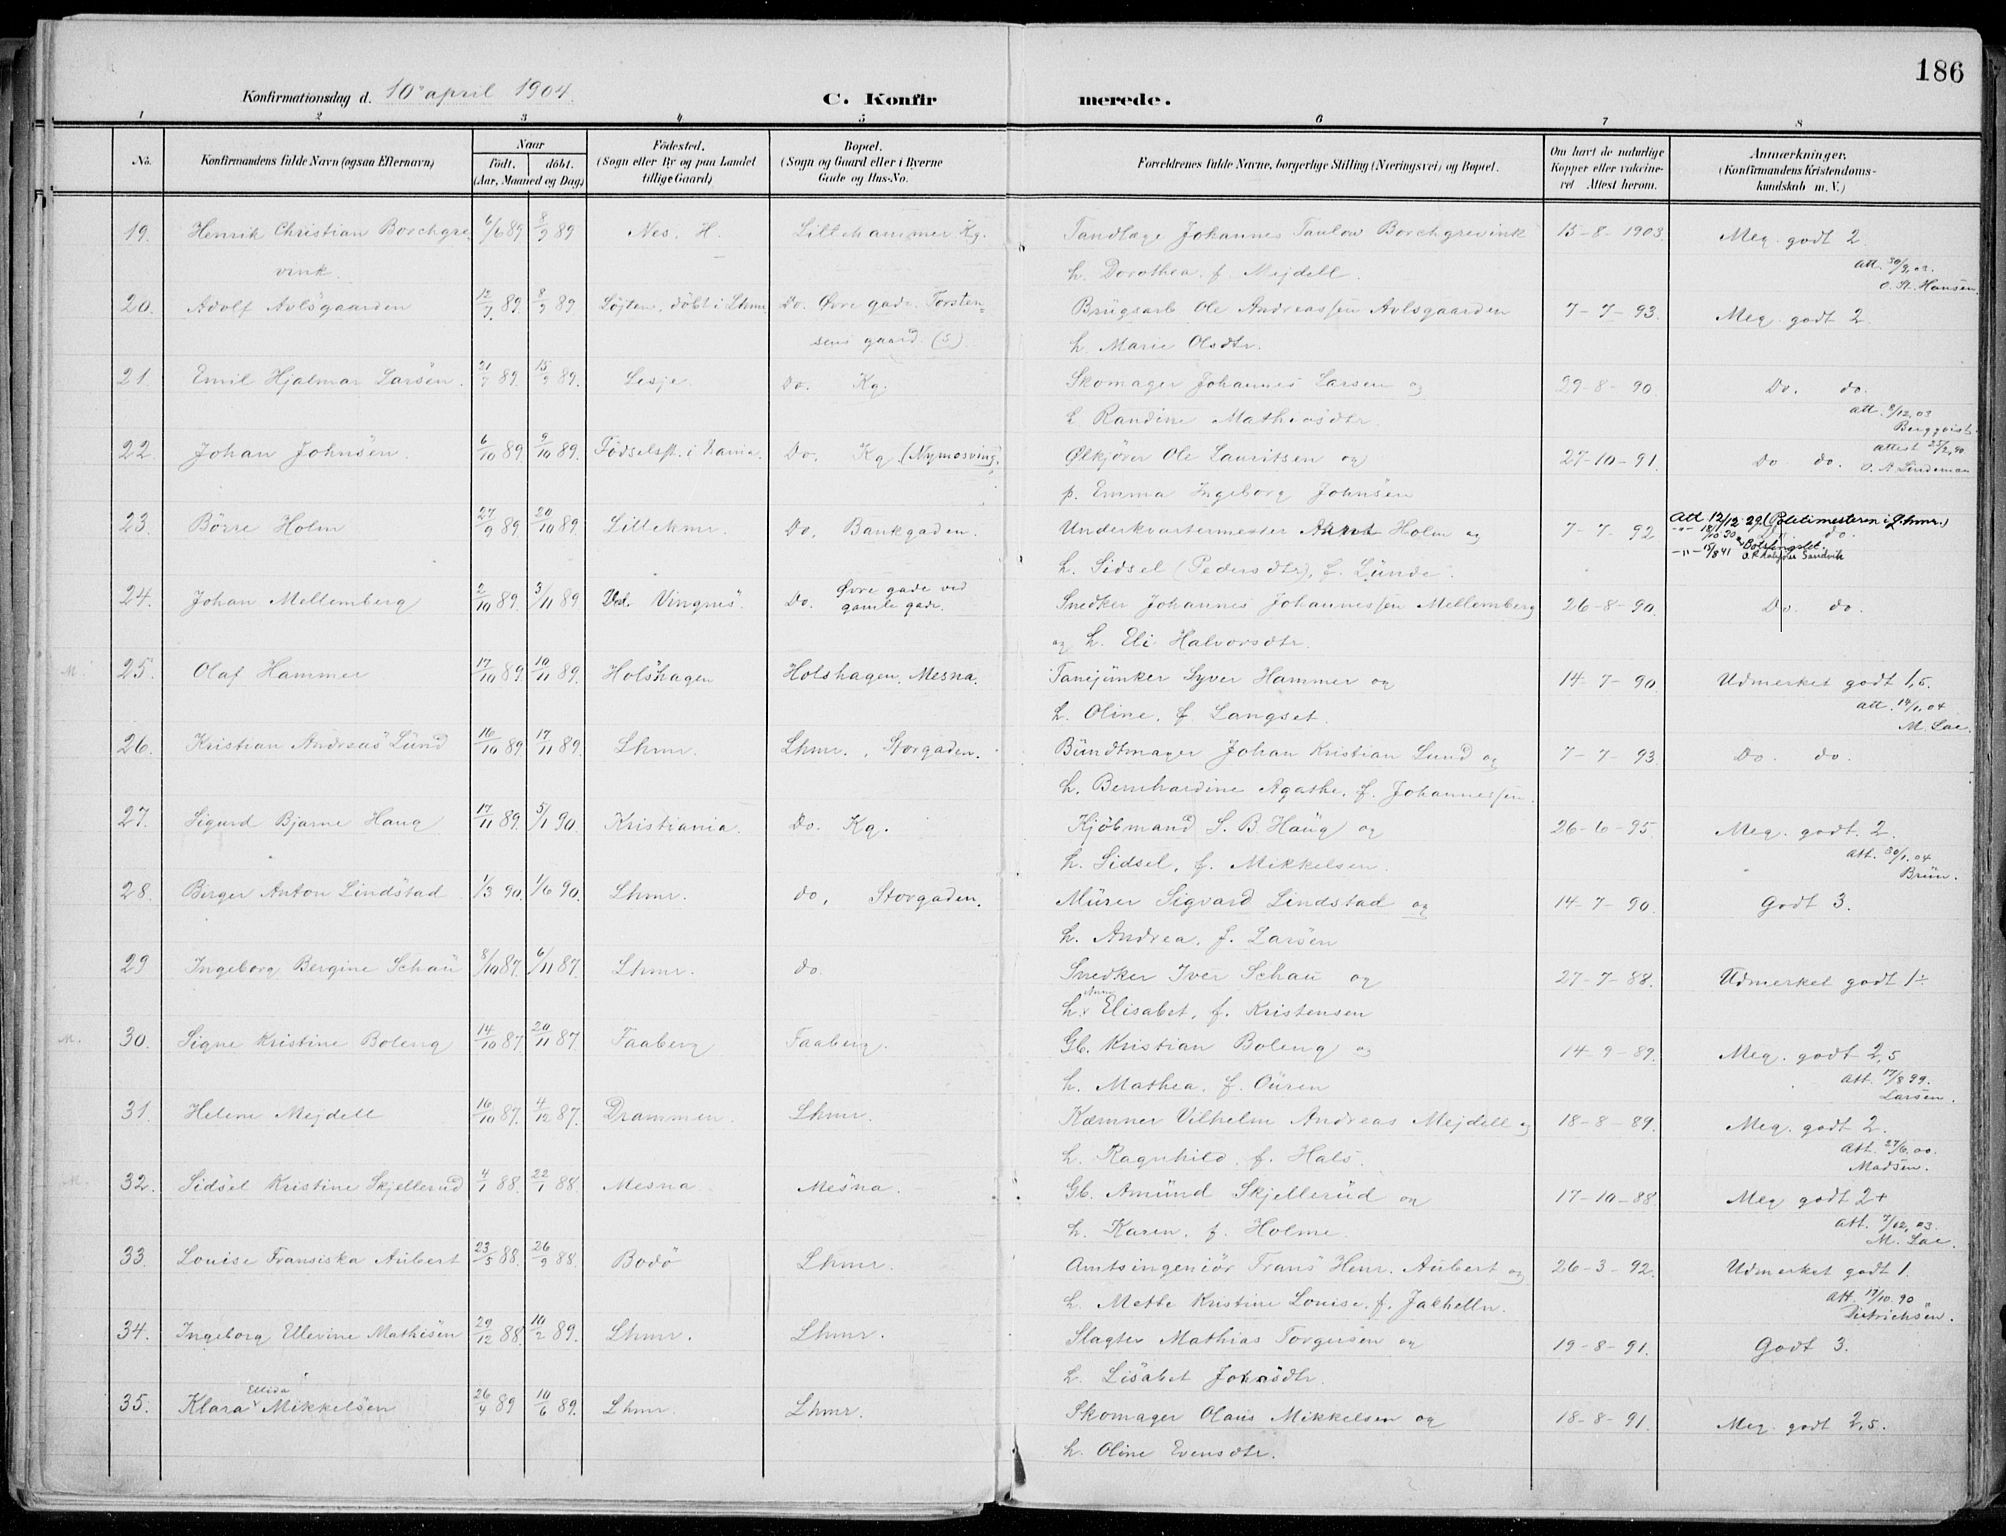 186
Konfirmationsdag d. 10de april 1904.
C. Konfirmerede.
1 2 3 4 5 6 7 8
No. | Konfirmandens fulde Navn (ogsaa Efternavn) | Naar født, døbt. (Aar, Maaned og Dag) | Fødested. (Sogn eller By og paa Landet tillige Gaard) | Bopæl. (Sogn og Gaard eller i Byerne Gade og Hus-No. | Forældrenes fulde Navne, borgerlige Stilling (Næringsvei) og Bopæl. | Om havt de naturlige Kopper eller vakcineret Attest herom. | Anmærkninger. (Konfirmandens Kristendomskundskab m. V.)
19. Henrik Christian Borchgre- 6/6 89 8/9 89 Nes. H. Lillehammer Kg. Tandlæge Johannes Taulow Borchgrevink 15-8-1903. Meg. godt 2.
vink. h. Dorothea f. Mejdell. Att. 30/9,02.
O. St. Hansen.
20. Adolf Avlsgaarden 12/7 89. 8/9 89 Løjten, døbt i Lhmr Do. Øvre gade. Torsten- Brugsarb Ole Andreassen Avlsgaarden 7-7-93. Meg. godt 2.
sens gaard. (5). h. Marie Olsdtr.
21. Emil Hjalmar Larsen. 21/7 89. 15/9 89. Lesje. Do. Kg. Skomager Johannes Larsen og 29-8-90. Do. do.
h. Randine Mathiasdtr. att. 8/12,03
Bergqvist.
22. Johan Johnsen. 6/10 89. 9/10 89. Fødselsst. i Xania. Do. Kg (Nymosving. Ølkjører Ole Lauritsen og 27-10-91. Do do.
p. Emma Ingeborg Johnsen attest 25/2,90
O. A. Lindeman
23. Børre Holm 27/9 89. 20/10 89. Lillehmr. Do. Bankgaden. Underkvartermester Arnt Holm og 7-7-92 do.
h. Sidsel (Pedersdtr), f. Lunde. Att 12/12 29 (Politimesteren i Lhmr.)
24. Johan Mellemberg 2/10 89. 3/11 89 Vingnes. Do. Øvre gade ved gamle gade. Snedker Johannes Johannessen Mellemberg 26-8-90. Do. do.
og h. Eli Halvorsdtr.
M. 25. Olaf Hammer 17/10 89. 10/11 89. Holshagen Holshagen, Mesna. Fanejunker Syver Hammer og 14-7-90 Udmerket godt 1,5.
h. Oline, f. Langset. att. 14/1,04
M. Lae.
26. Kristian Andreas Lund 16/10 89 17/11 89. Lhmr. Lhmr., Storgaden. Buntmager Johan Kristian Lund og 7-7-93. Do. do.
h. Bernhardine Agathe. f. Johannessen.
27. Sigurd Bjarne Haug 17/11 89. 5/1 90. Kristiania. Do. Kg. Kjøbmand S. B. Haug og 26-6-95. Meg. godt. 2.
h. Sidsel, f. Mikkelsen. att. 30/1,04
Bruun.
28. Birger Anton Lindstad 1/3 90. 1/6 90. Lhmr. do, Storgaden. Murer Sigvard Lindstad og 14-7-90. Godt 3.
h. Andrea. f. Larsen
29 Ingeborg Bergine Schau 8/10 87. 6/11 87. Lhmr. do. Snedker Iver Schau og 27-7-88. Udmerket godt 1÷
h. Anne Elisabet, f. Kristensen
M. 30. Signe Kristine Boleng 14/10 87. 20/11 87. Faaberg Faaberg. Gb. Kristian Boleng og 14-9-89. Meg. godt 2,5
h. Mathea, f. Ouren Att. 17/8 99.
Larsen.
31. Helene Mejdell 16/10 87. 4/12 87. Drammen Lhmr. Kæmner Vilhelm Andreas Mejdell og 18-8-89. Meg. godt 2.
h. Ragnhild. f. Hals. att. 27/6,00.
Madsen.
M. 32. Sidsel Kristine Skjellerud 4/1 88. 22/1 88. Mesna. Mesna. Gb. Amund Skjellerud og 17-10-88 Meg godt 2+
h. Karen, f. Holme. att. 7/12,03.
M. Lae.
33. Louise Fransiska Aubert 23/5 88. 26/9 88. Bodø Lhmr. Amtsingeniør Frans Henr. Aubert og 26-3-92. Udmerket godt 1.
h. Mette Kristine Louise. f. Jakhelln. att. 17/10.90
Dietrichsen.
34. Ingeborg Ellevine Mathisen 29/12 88. 10/2 89. Lhmr. Lhmr. Slagter Mathias Torgersen og 19-8-91. Godt 3.
h. Lisabet Johnsdtr.
35. Klara Ellida Mikkelsen 26/4 89 10/6 89. Lhmr. Lhmr. Skomager Olaus Mikkelsen og 18-8-91. Meg. godt 2,5.
h. Oline Evensdtr.